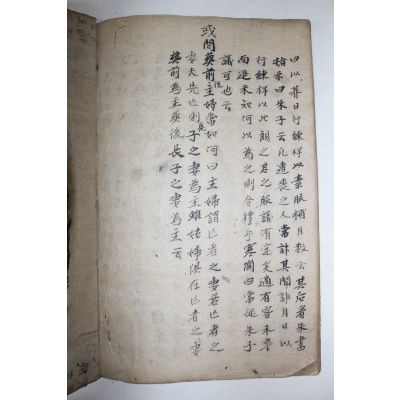 曰以葬日行練祥以素服補月數云其后看朱書
指示曰朱子云凡遣喪之人當計其聞訃月日以
行練祥以此觀之君之服議有定矣適有客未擧
而進未知何以為之則合禮乎寒岡曰當從朱子
議可也云
或問葬前後主婦當如何曰主婦謂亡者之妻若亡者之
妻夫先亡則長子之妻為主雖姑婦俱在亡者之妻
葬前為主葬後長子之妻為主云